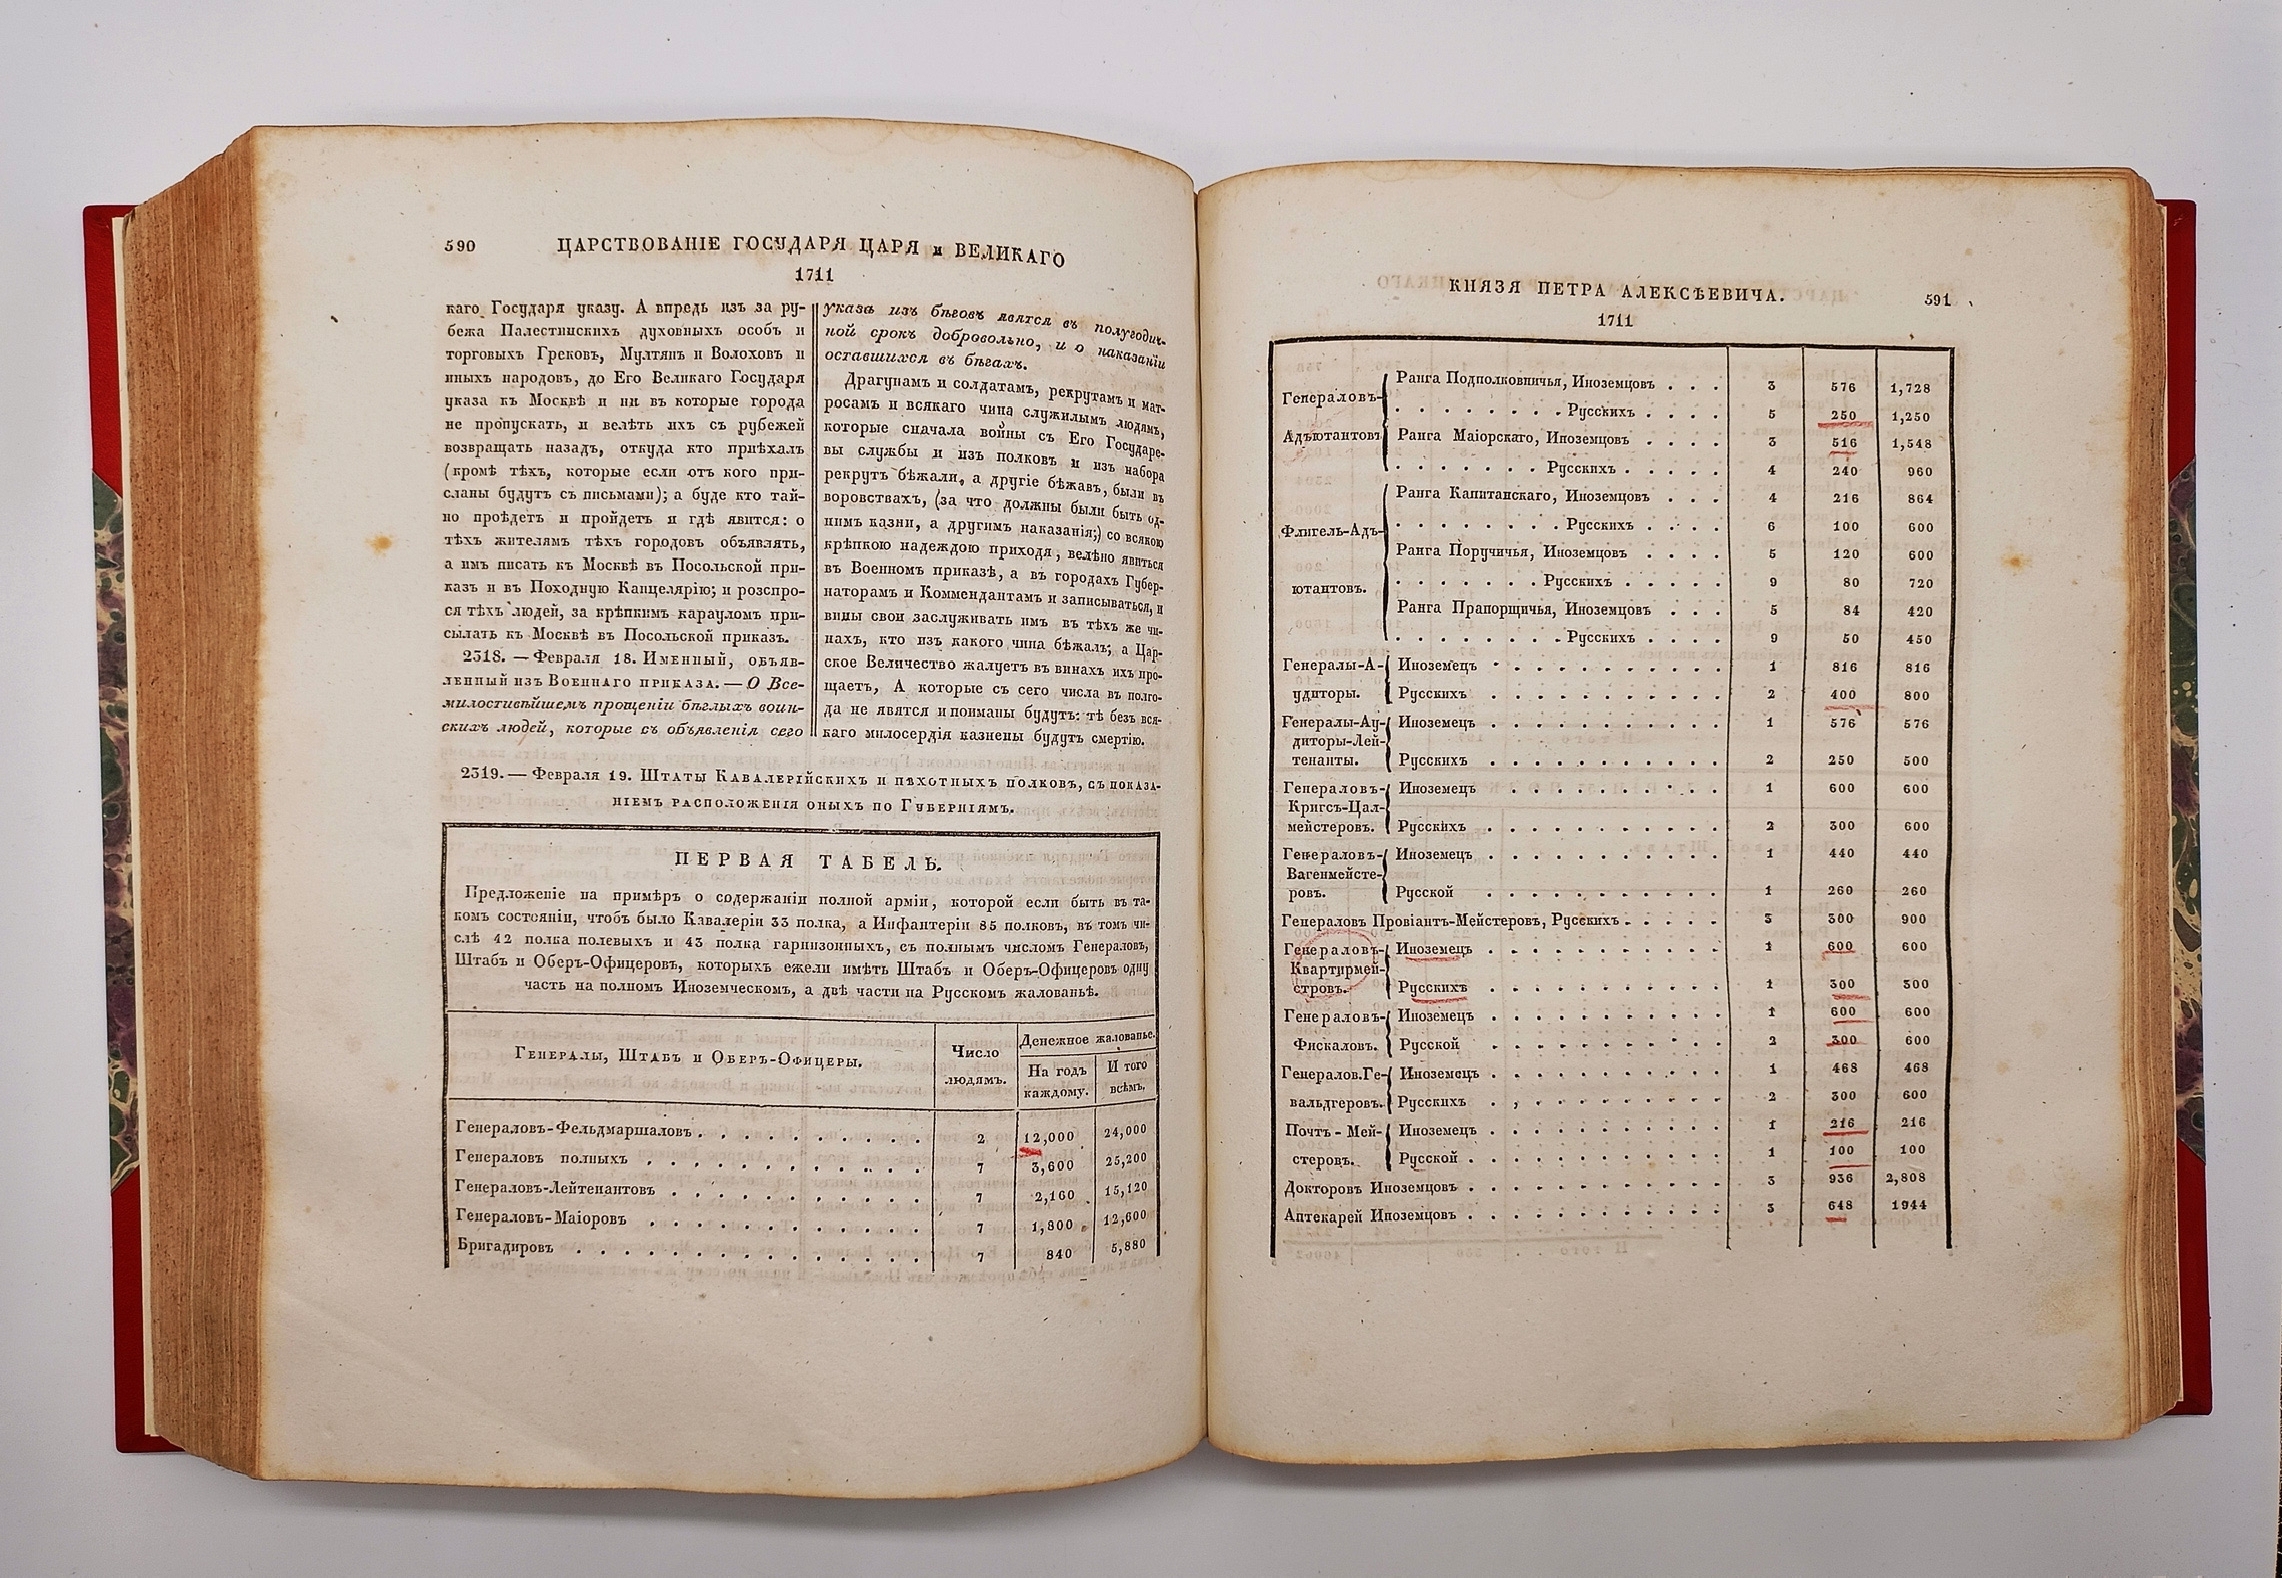 590 ЦАРСТВОВАНІЕ ГОСУДАРЯ ЦАРЯ и ВЕЛИКАГО
1711
каго Государя указу. А впредь изъ за ру-
бежа Палестинскихъ духовныхъ особъ и
торговыхъ Грековъ, Мултянъ и Волоховъ и
иныхъ народовъ, до Его Великаго Государя
указа къ Москвѣ и ни въ которые города
не пропускать, и велѣть ихъ съ рубежей
возвращать назадъ, откуда кто приѣхалъ
(кромѣ тѣхъ, которые если отъ кого при-
сланы будутъ съ письмами); а буде кто тай-
но проѣдетъ и пройдетъ и гдѣ явится: о
тѣхъ жителямъ тѣхъ городовъ объявлять,
а имъ писать къ Москвѣ въ Посольской при-
казъ и въ Походную Канцелярію; и розспро-
ся тѣхъ людей, за крѣпкимъ карауломъ при-
сылать къ Москвѣ въ Посольской приказъ.
2318. — Февраля 18. Именный, объяв-
ленный изъ Военнаго приказа. — О Все-
милостивѣйшемъ прощеніи бѣглыхъ воин-
скихъ людей, которые съ объявленія сего
указа изъ бѣговъ явятся въ полугодич-
ной срокъ добровольно, и о наказаніи
оставшихся въ бѣгахъ.
Драгунамъ и солдатамъ, рекрутамъ и мат-
росамъ и всякаго чина служилымъ людямъ,
которые сначала войны съ Его Государе-
вы службы и изъ полковъ и изъ набора
рекрутъ бѣжали, а другіе бѣжавъ, были въ
воровствахъ, (за что должны были быть од-
нимъ казни, а другимъ наказанія;) со всякою
крѣпкою надеждою приходя, велѣно явиться
въ Военномъ приказѣ, а въ городахъ Губер-
наторамъ и Коммендантамъ и записываться, и
вины свои заслуживать имъ въ тѣхъ же чи-
нахъ, кто изъ какого чина бѣжалъ; а Цар-
ское Величество жалуетъ въ винахъ ихъ про-
щаетъ, А которые съ сего числа въ полго-
да не явятся и поиманы будутъ: тѣ безъ вся-
каго милосердія казнены будутъ смертію.
2319. — Февраля 19. Штаты Кавалерійскихъ и пѣхотныхъ полковъ, съ показа-
ніемъ расположенія оныхъ по Губерніямъ.
ПЕРВАЯ ТАБЕЛЬ.
Предложеніе на примѣръ о содержаніи полной арміи, которой если быть въ та-
комъ состояніи, чтобъ было Кавалеріи 33 полка, а Инфантеріи 85 полковъ, въ томъ чи-
слѣ 42 полка полевыхъ и 43 полка гарнизонныхъ, съ полнымъ числомъ Генераловъ,
Штабъ и Оберъ-Офицеровъ, которыхъ ежели имѣть Штабъ и Оберъ-Офицеровъ одну
часть на полномъ Иноземческомъ, а двѣ части на Русскомъ жалованьѣ.
Генералы, Штабъ и Оберъ-Офицеры. Число людямъ. Денежное жалованье.
На годъ каждому. И того всѣмъ.
Генераловъ-Фельдмаршаловъ . . . 2 12,000 24,000
Генераловъ полныхъ . . . 7 3,600 25,200
Генераловъ-Лейтенантовъ . . . 7 2,160 15,120
Генераловъ-Маіоровъ . . . 7 1,800 12,600
Бригадировъ . . . 7 840 5,880
КНЯЗЯ ПЕТРА АЛЕКСѢЕВИЧА. 591
1711
Генераловъ-Адъютантовъ Ранга Подполковничья, Иноземцовъ . . . 3 576 1,728
Русскихъ . . . 5 250 1,250
Ранга Маіорскаго, Иноземцовъ . . . 3 516 1,548
Русскихъ . . . 4 240 960
Флигель-Адъютантовъ. Ранга Капитанскаго, Иноземцовъ . . . 4 216 864
Русскихъ . . . 6 100 600
Ранга Поручичья, Иноземцовъ . . . 5 120 600
Русскихъ . . . 9 80 720
Ранга Прапорщичья, Иноземцовъ . . . 5 84 420
Русскихъ . . . 9 50 450
Генералы-Аудиторы. Иноземецъ . . . 1 816 816
Русскихъ . . . 2 400 800
Генералы-Аудиторы-Лейтенанты. Иноземецъ . . . 1 576 576
Русскихъ . . . 2 250 500
Генераловъ-Кригсъ-Цалмейстеровъ. Иноземецъ . . . 1 600 600
Русскихъ . . . 2 300 600
Генераловъ-Вагенмейстеровъ. Иноземецъ . . . 1 440 440
Русской . . . 1 260 260
Генераловъ Провіантъ-Мейстеровъ, Русскихъ . . . 3 300 900
Генераловъ-Квартирмейстровъ. Иноземецъ . . . 1 600 600
Русскихъ . . . 1 300 300
Генераловъ-Фискаловъ. Иноземецъ . . . 1 600 600
Русской . . . 2 300 600
Генералов.Гевальдгеровъ. Иноземецъ . . . 1 468 468
Русскихъ . . . 2 300 600
Почтъ-Мейстеровъ. Иноземецъ . . . 1 216 216
Русской . . . 1 100 100
Докторовъ Иноземцовъ . . . 3 936 2,808
Аптекарей Иноземцовъ . . . 3 648 1944